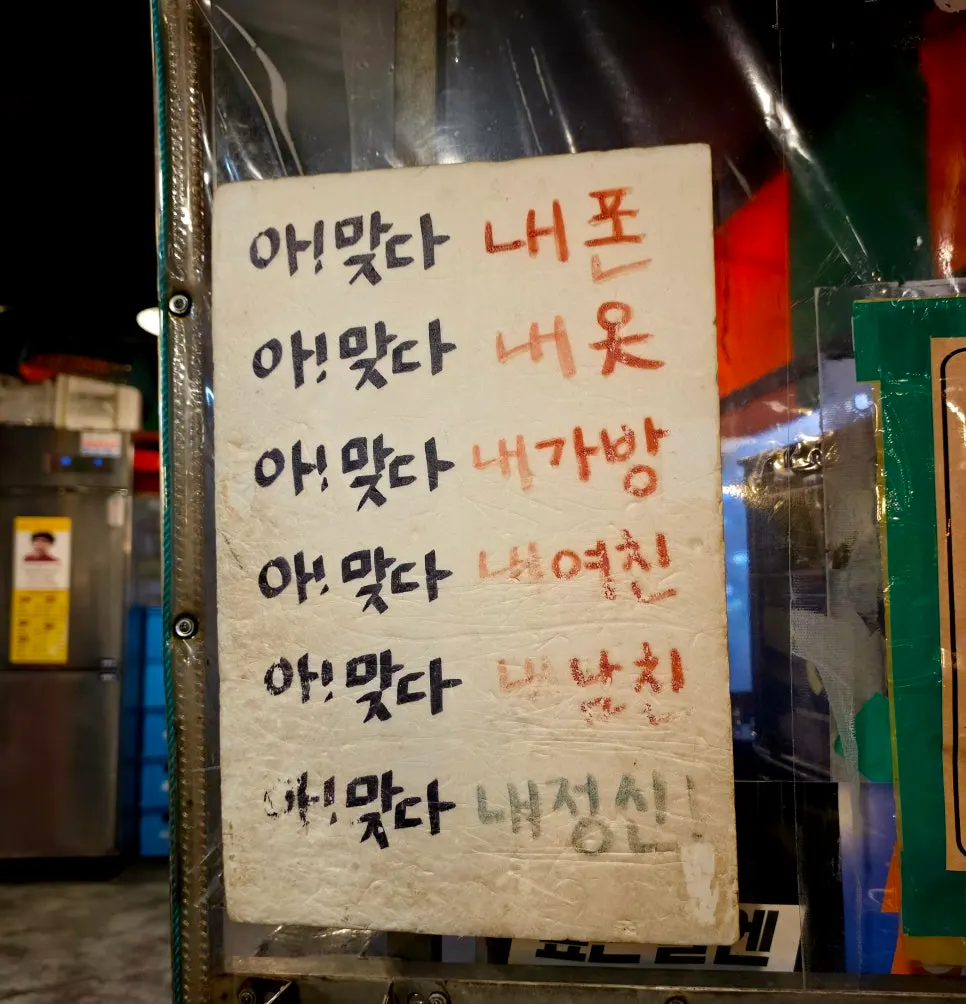 아! 맞다 내 폰
아! 맞다 내 옷
아! 맞다 내 가방
아! 맞다 내 여친
아! 맞다 내 남친
아! 맞다 내 정신!